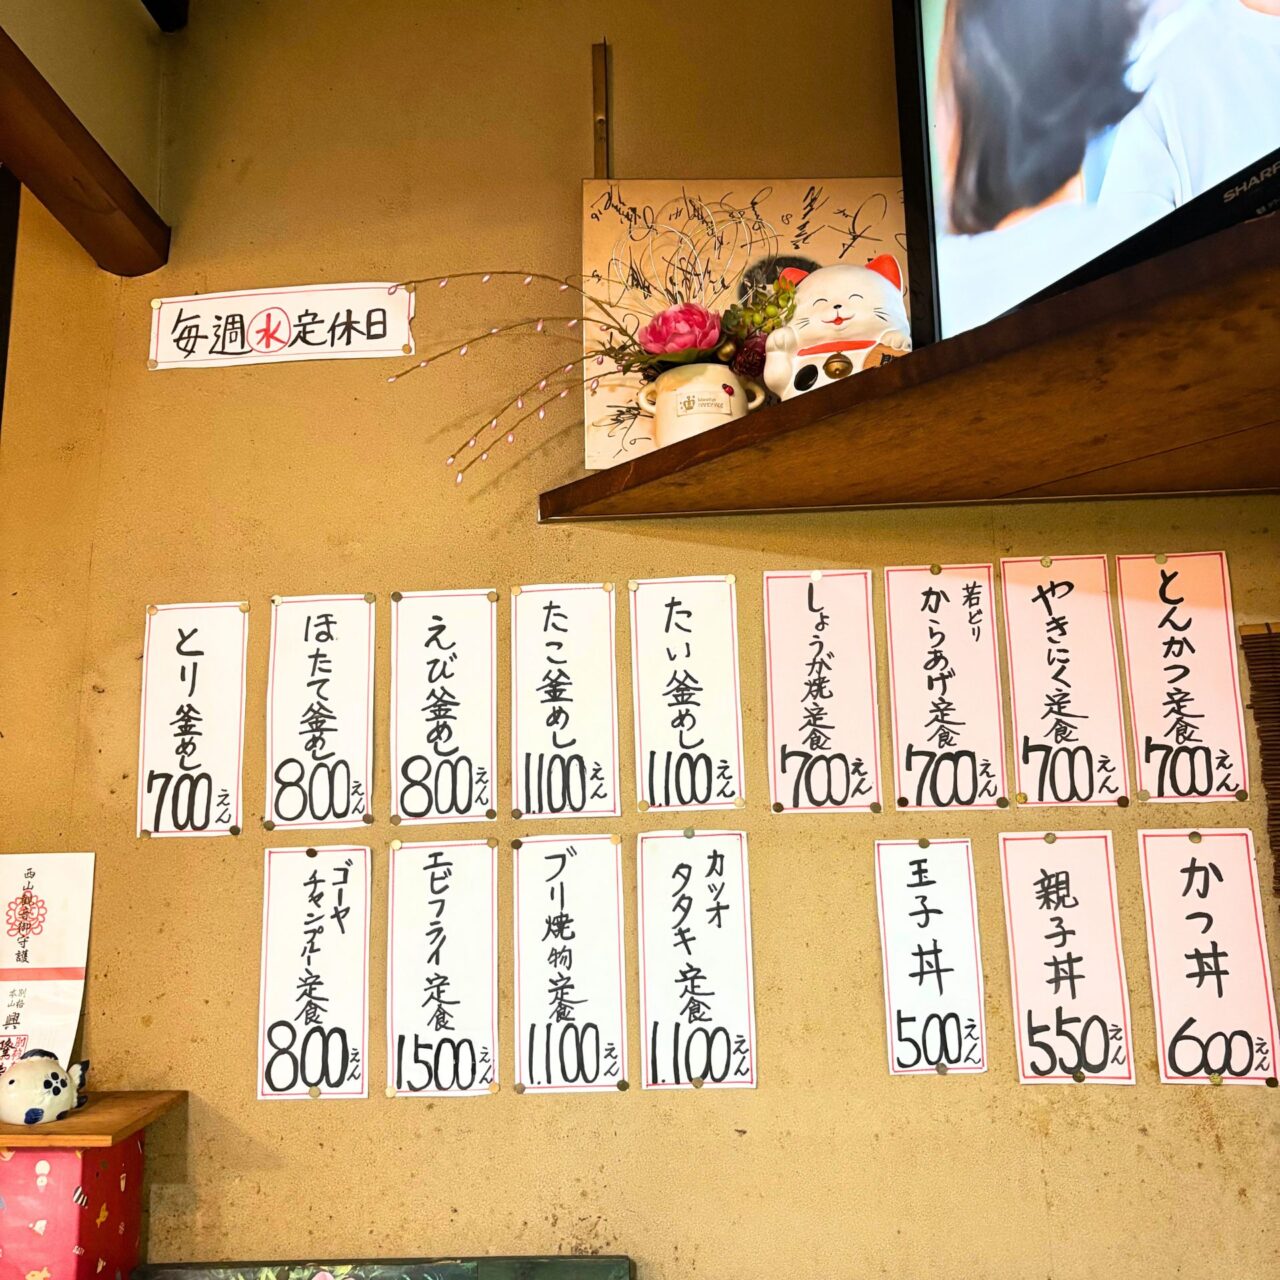 毎週水定休日
SHARP
とんかつ定食
700えん
やきにく定食
700えん
若どり
からあげ定食
700えん
しょうが焼定食
700えん
たい釜めし
1.100えん
たこ釜めし
1.100えん
えび釜めし
800えん
ほたて釜めし
800えん
とり釜めし
700えん
かつ丼
600えん
親子丼
550えん
玉子丼
500えん
カツオ
タタキ定食
1.100えん
ブリ焼物定食
1.100えん
エビフライ定食
1.500えん
ゴーヤ
チャンプルー定食
800えん
西山観音御守護
別格
本山